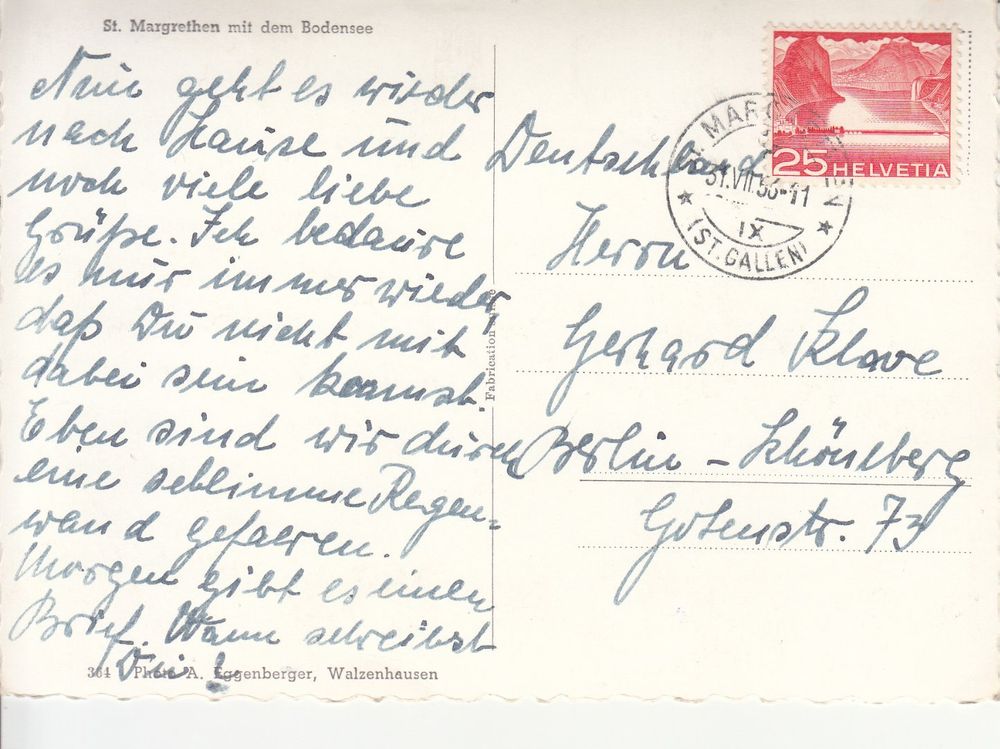 St. Margrethen mit dem Bodensee
Nun geht es wieder
nach Hause und
noch viele liebe
Grüße. Ich bedaure
es nur immer wieder,
daß Du nicht mit
dabei sein kannst.
Eben sind wir durch
eine schlimme Regen-
wand gefahren.
Morgen gibt es einen
Brief. Wann schreibst
Du?
364 Photo A. Eggenberger, Walzenhausen
Fabrication
25 HELVETIA
31.VII.53-11
IX
(ST. GALLEN)
Deutschland
Herrn
Gerhard Klave
Berlin - Schöneberg
Gotenstr. 73